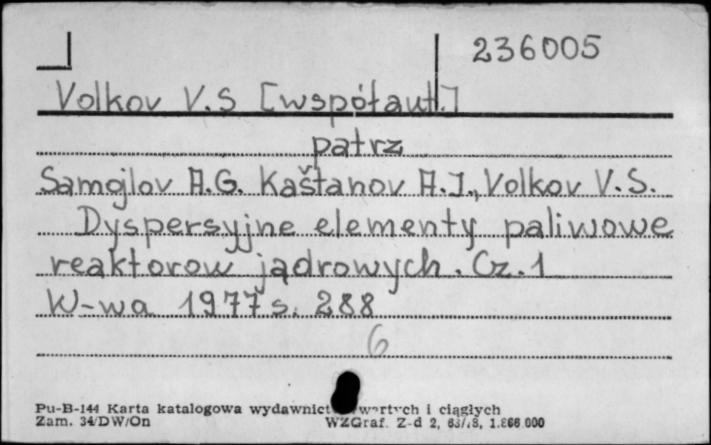 236005
Volkov V.S [współaut.]
patrz
Samojlov A.G. Kaštanov A.I., Volkov V.S.
Dyspersyjne elementy paliwowe
reaktorow jądrowych. Cz. 1
W-wa 1977 s. 288
6
Pu-B-144 Karta katalogowa wydawnictw zwartych i ciągłych
Zam. 34/DW/On WZGraf. Z-d 2, 1.866.000